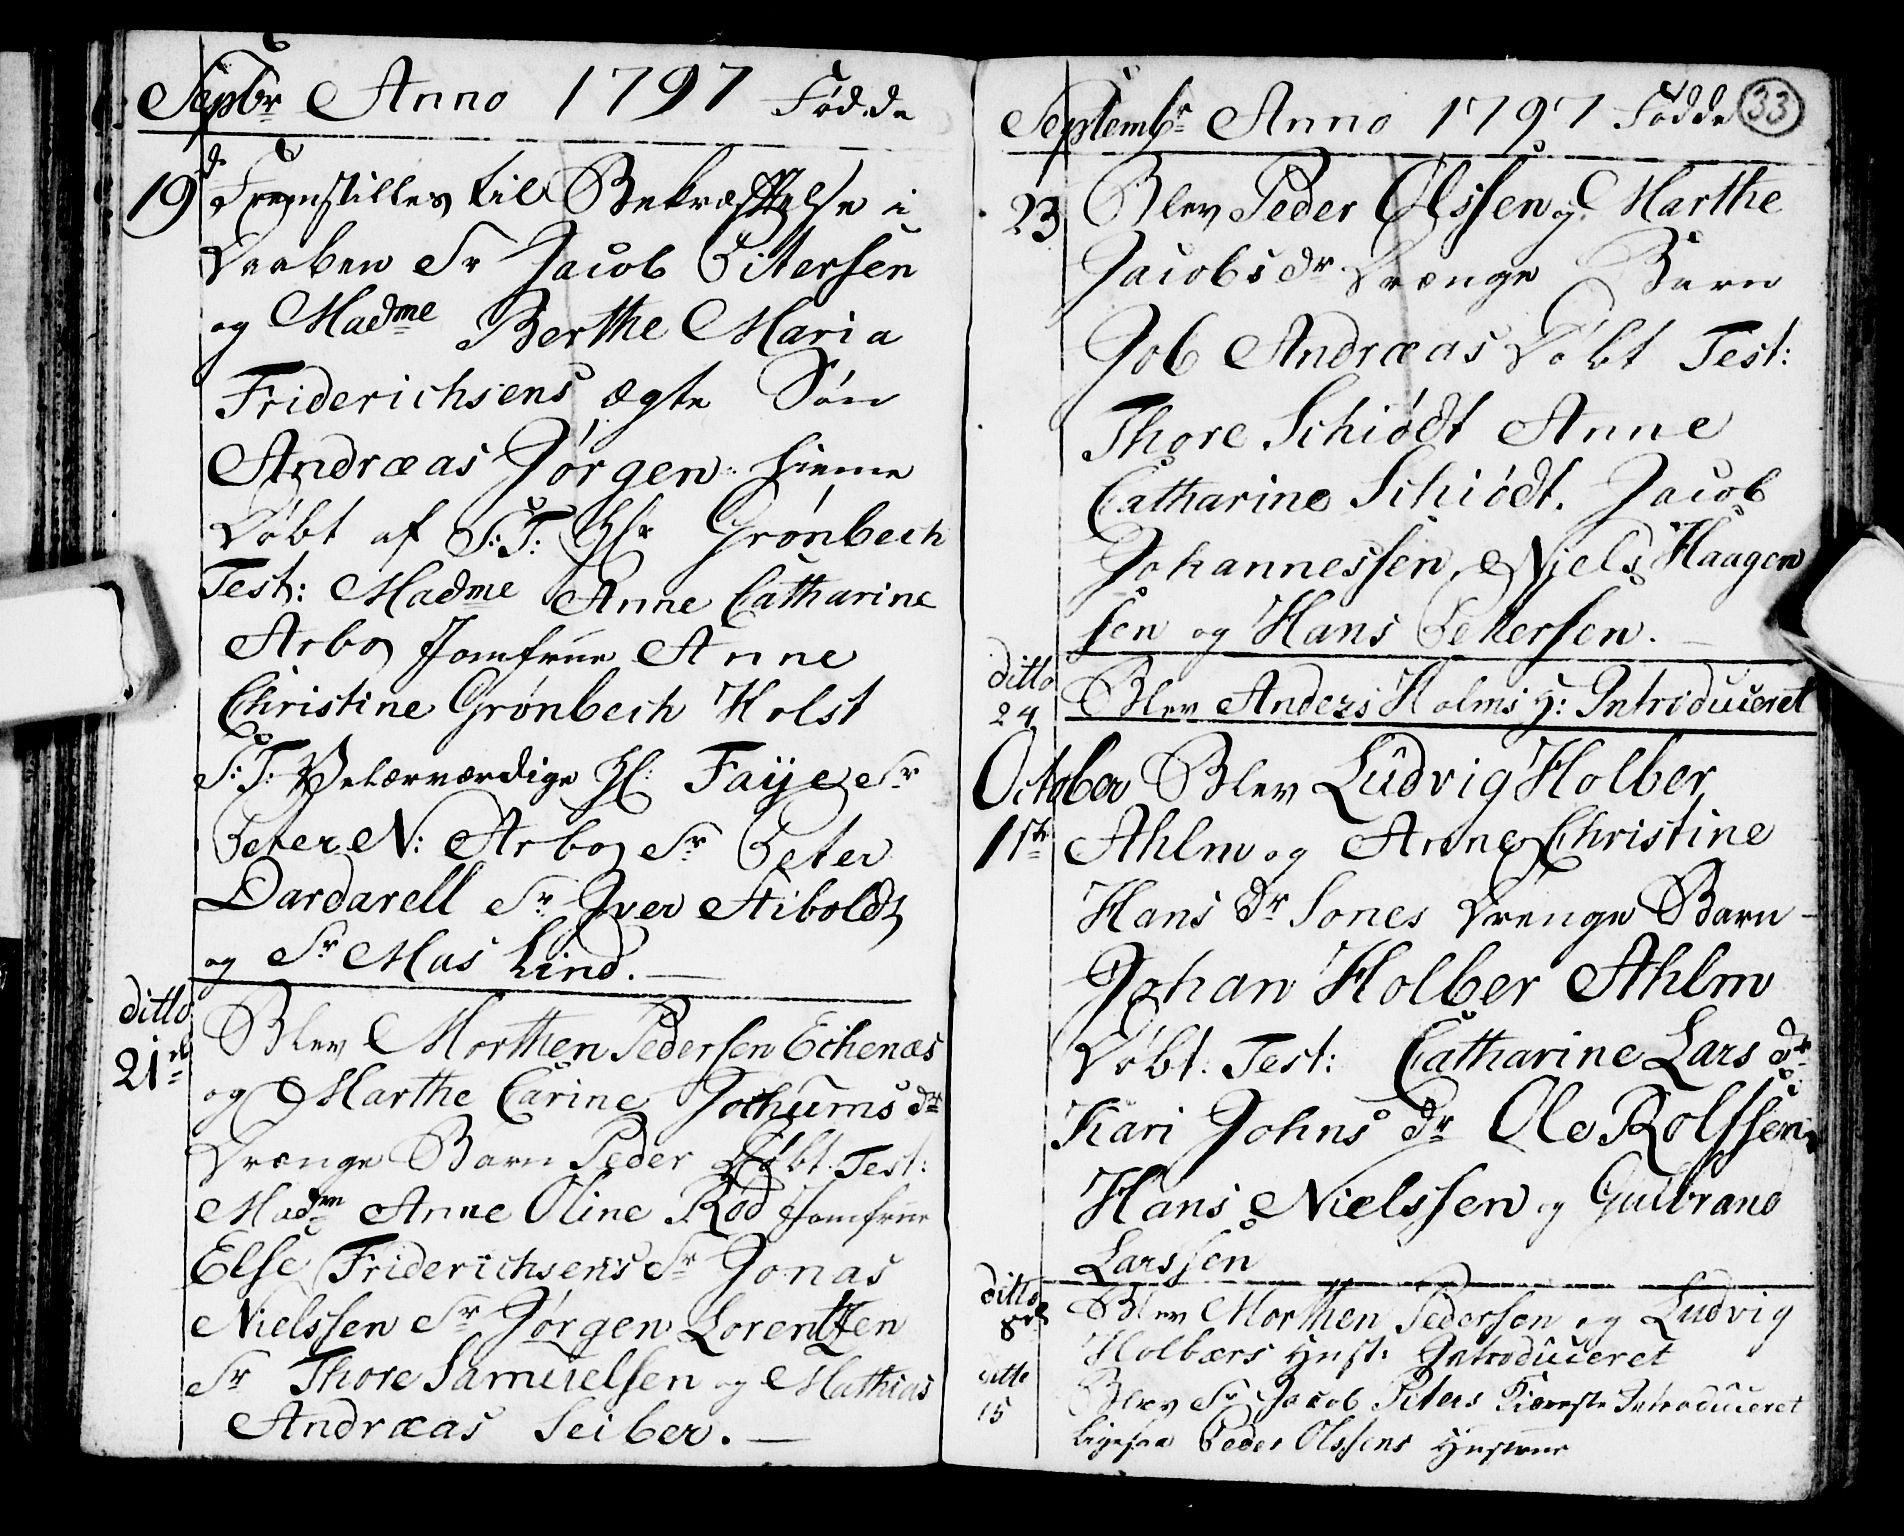 Sepbr Anno 1797 Fødde
19 d. Fremstilles til Bekræftelse i
Daaben Sr Jacob Pitersen
og Madme Berthe Maria
Friderichsens ægte Søn
Andræas Jørgen. hieme
Døbt af S:T: Hr Grønbech
Test: Madme Anne Catharine
Arbo Jomfrue Anne
Christine Grønbech Holst
S:T: Velærværdige H: Faÿe Sr
Peter N: Arbo Sr Peter
Dardarell Sr Iver Stiboldt
og Sr Mas Lind. —
ditto
21 Blev Morthen Pedersen Echenæs
og Marthe Carine Jochums dr
Drænge Barn Peder Døbt. Test:
Madm Anne Oline Rod Jomfrue
Else Friderichsens Sr Jonas
Nielssen Sr Jørgen Lorentzen
Sr Thore Samuelsen og Mathias
Andræas Seiber. —
Septembr Anno 1797 Fødde 33
23 Blev Peder Olssen og Marthe
Jacobs dr Drænge Barn
Job Andræas Døbt Test:
Thore Schiødt Anne
Catharine Schiødt. Jacob
Johannessen, Niels Haagen
sen og Hans Petersen. —
ditto
24 Blev Anders Holms H: Introduceret
October Blev Ludvig Holber
1ste Ahlm og Anne Christine
Hans dr Sones Drenge Barn
Johan Holber Ahlm
Døbt. Test: Catharine Lars dr
Kari Johns dr Ole Rolfssen
Hans Nielssen og Gulbrand
Larssen
ditto
8de Blev Morthen Pedersen og Ludvig
Holbærs Hust: Introduceret
ditto
15 Blev Sr Jacob Piters Kiæreste Introduceret
ligesaa Peder Olssens Hustrue